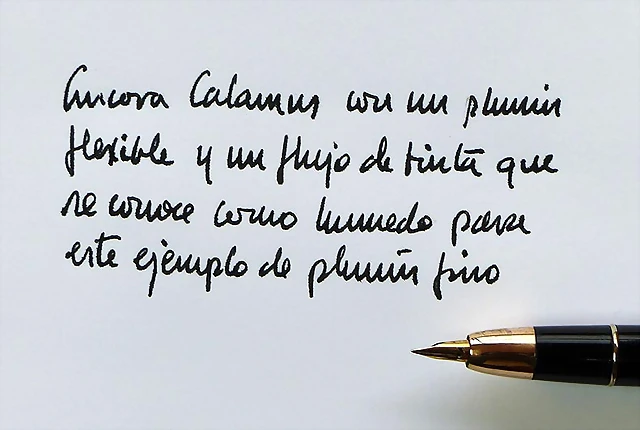 Ancora Calamus con un plumín
flexible y un flujo de tinta que
se conoce como humedo para
este ejemplo de plumín fino